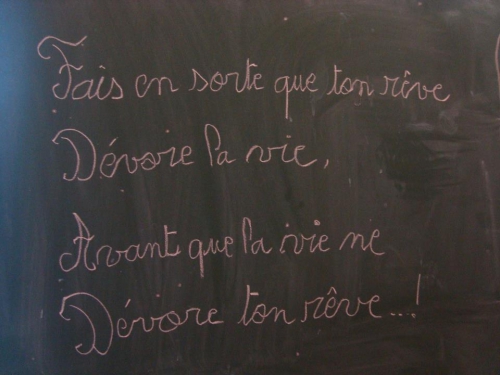 Fais en sorte que ton rêve
Dévore la vie,
Avant que la vie ne
Dévore ton rêve...!